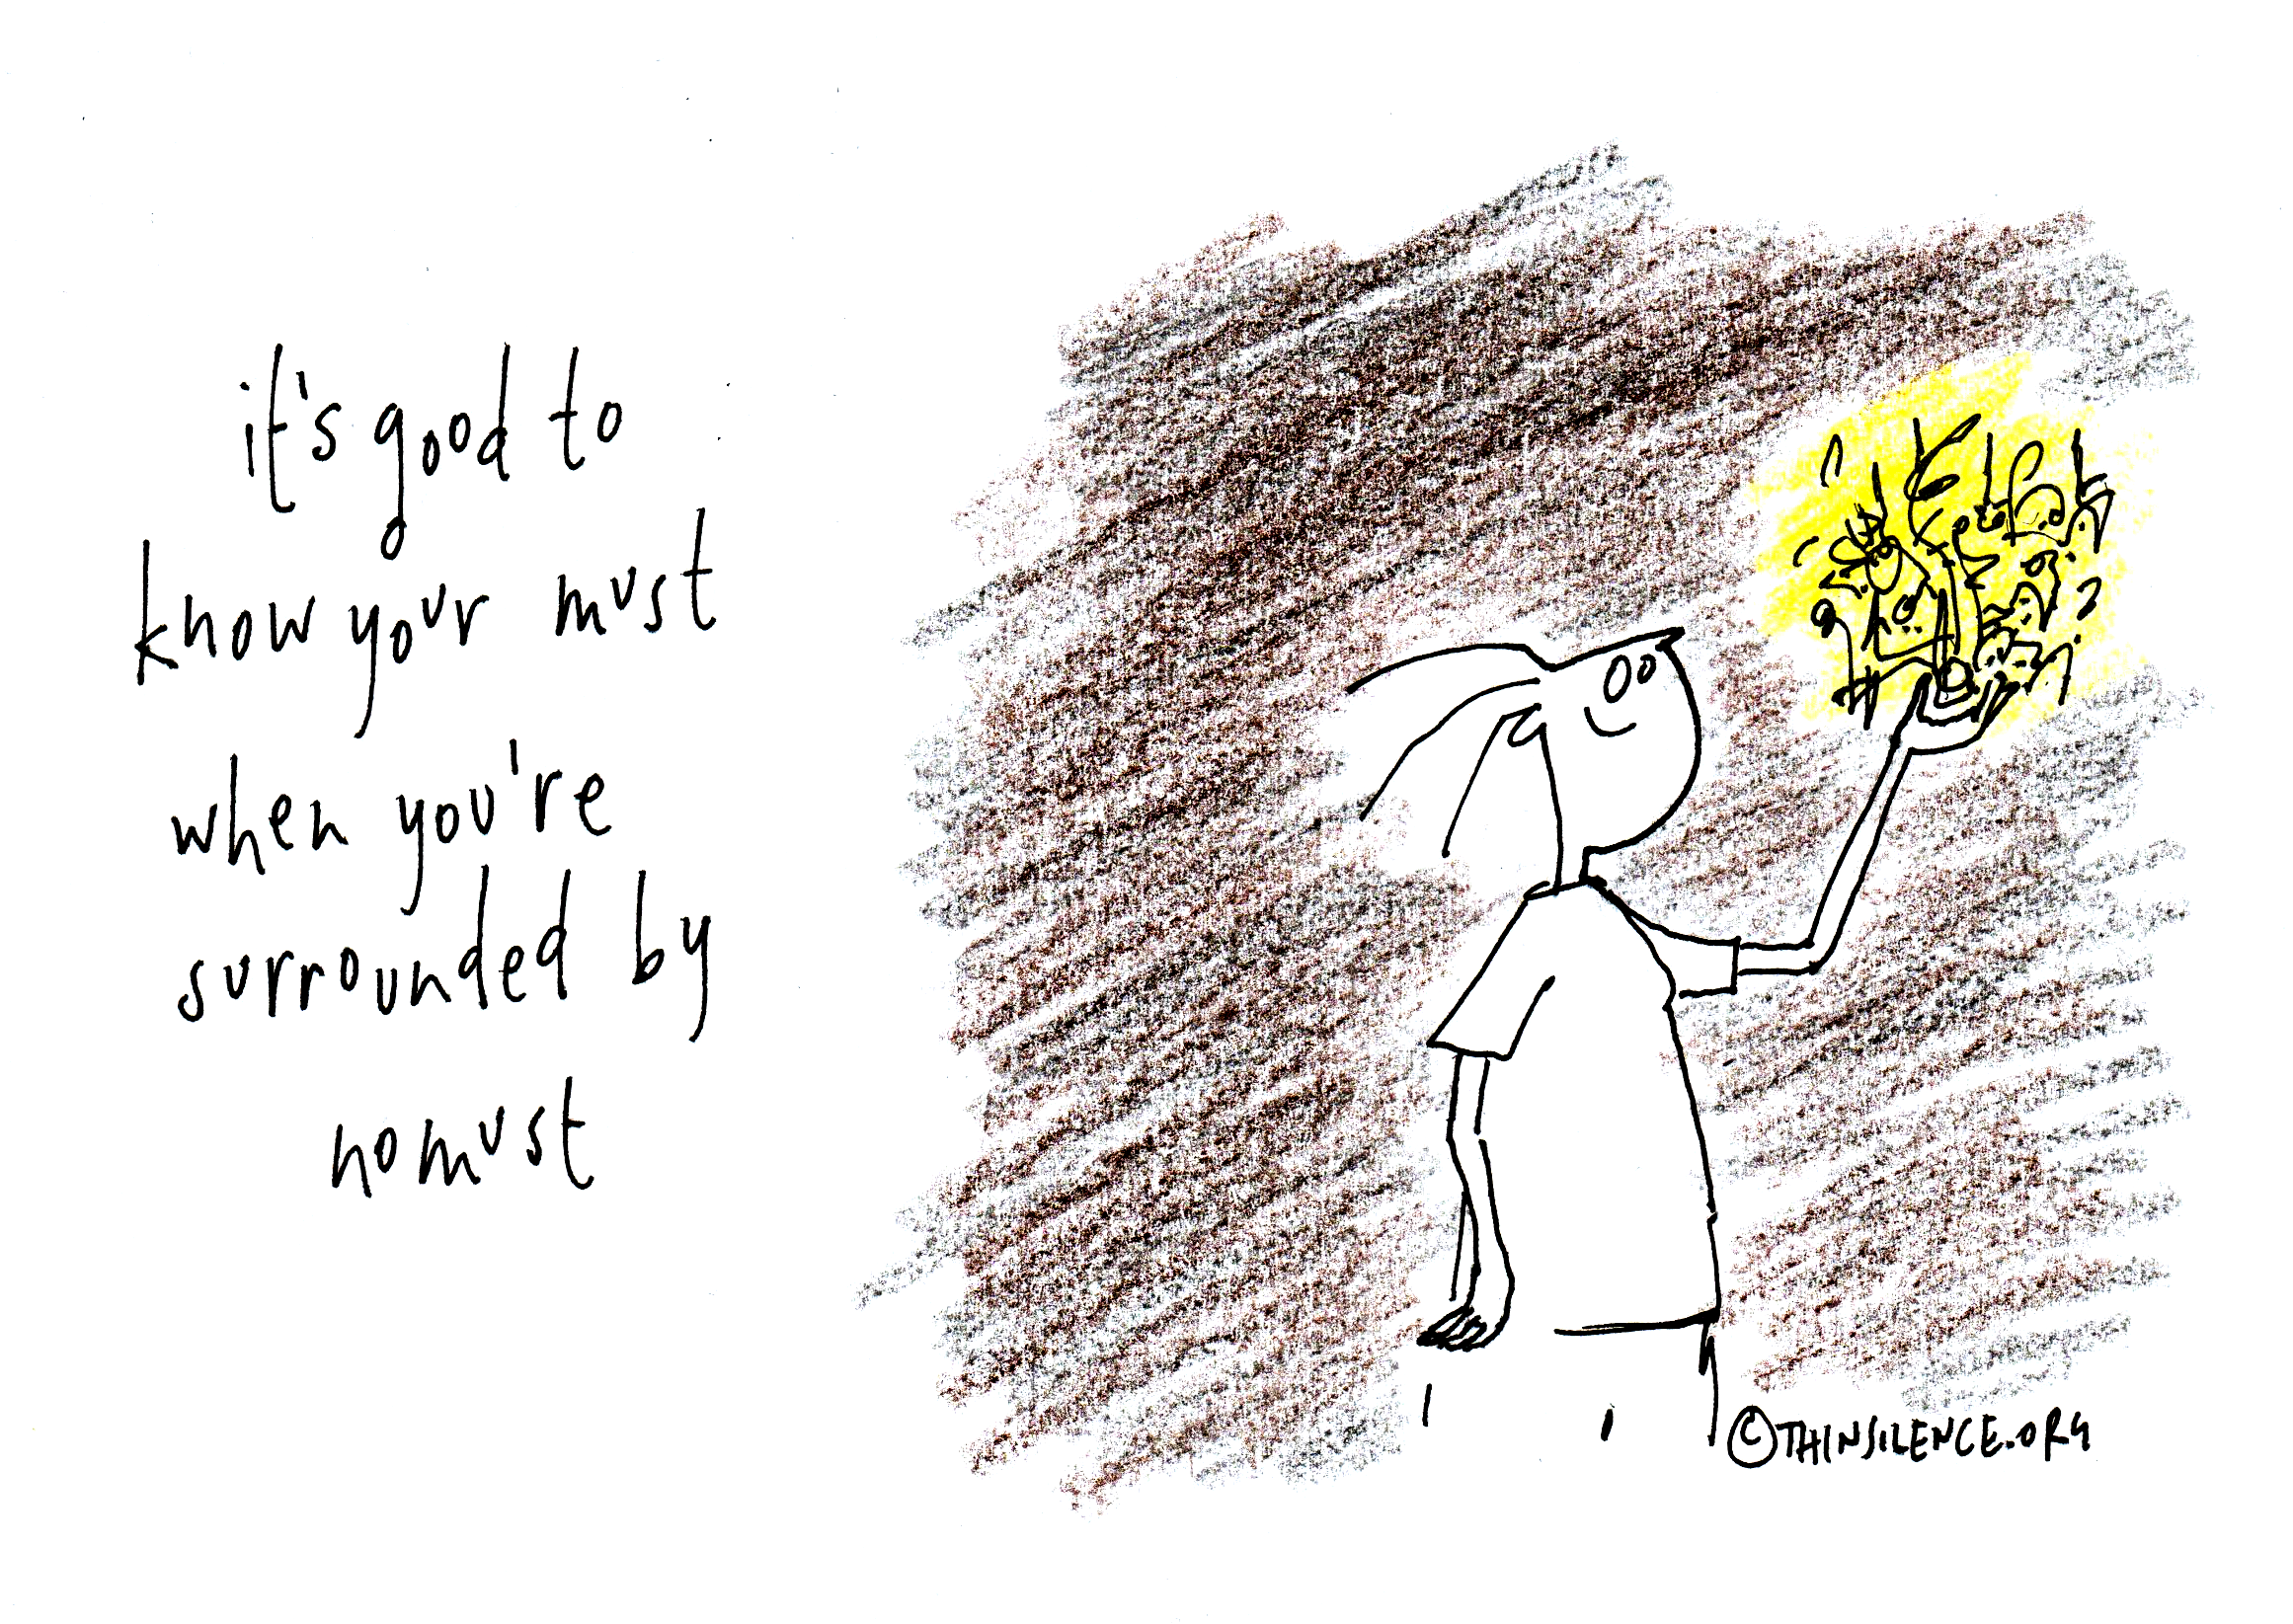 it's good to
know your must
when you're
surrounded by
nomust
©THINSILENCE.ORG